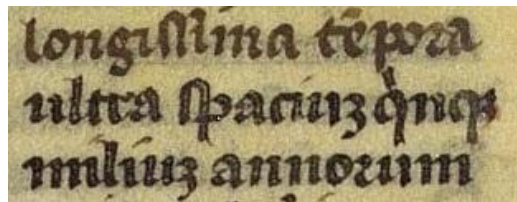 longissima tēpora
ultra spaciuꝫ qͥnqꝫ
miliuꝫ annorum